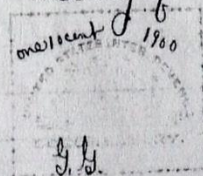 6
one 10 cent 1900
UNITED STATES INTER REVENUE
G. G.